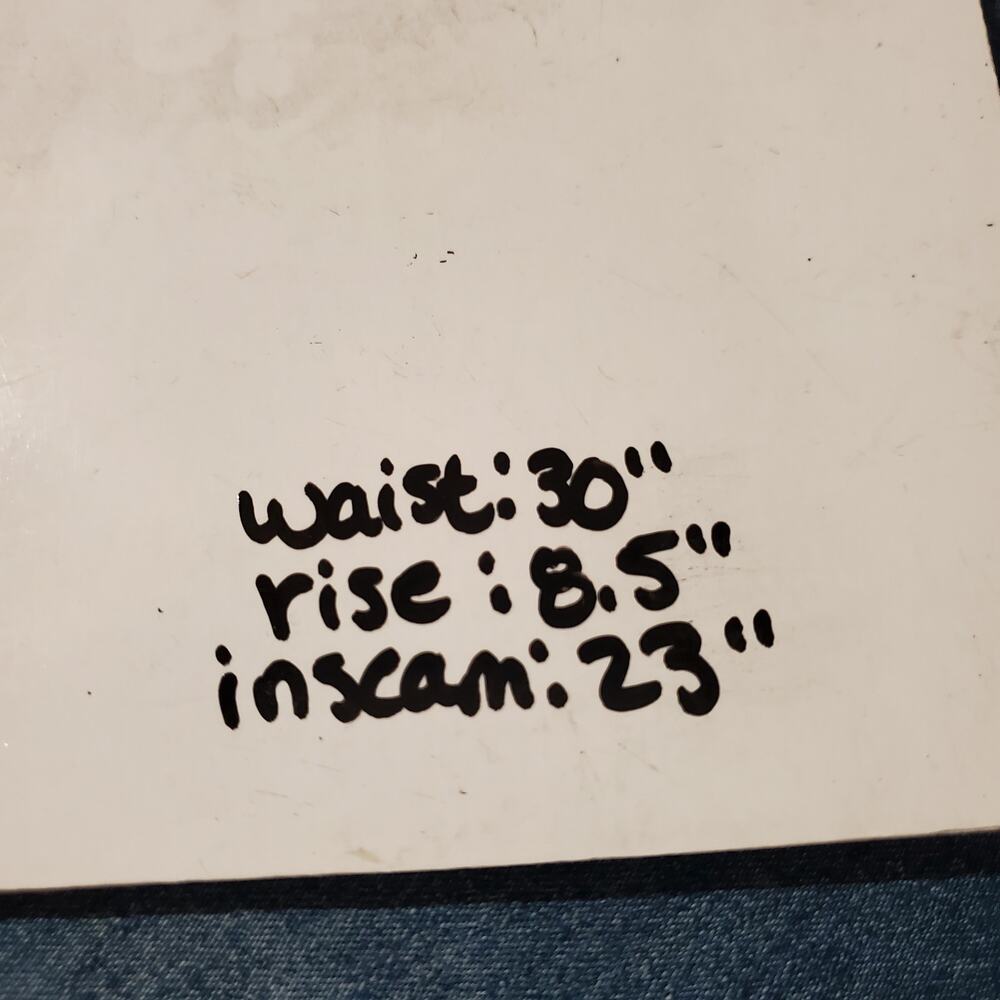 waist: 30"
rise: 8.5"
inseam: 23"